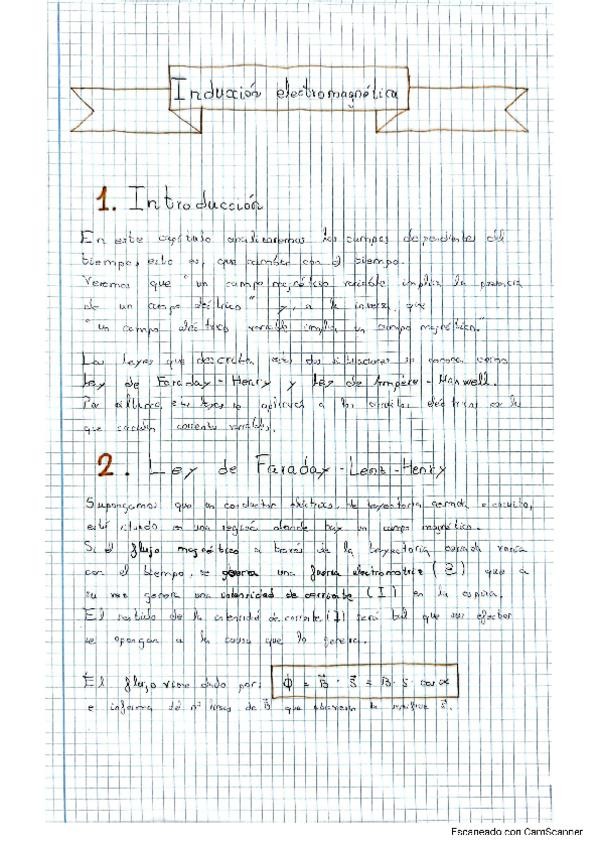 Inducción electromagnética
1. Introducción
En este capítulo analizaremos los campos dependientes del
tiempo, esto es, que cambian con el tiempo.
Veremos que "un campo magnético variable implica la presencia
de un campo eléctrico" y, a la inversa, que
"un campo eléctrico variable implica un campo magnético."
Las leyes que describen estas dos situaciones se conocen como
Ley de Faraday-Henry y Ley de Ampère-Maxwell.
Por último, estas leyes se aplican a los circuitos eléctricos en los
que circulan corrientes variables.
2. Ley de Faraday-Lenz-Henry
Supongamos que un conductor eléctrico, de trayectoria cerrada o circuito,
está situado en una región donde hay un campo magnético.
Si el flujo magnético a través de la trayectoria cerrada varía
con el tiempo, se genera una fuerza electromotriz (Ɛ) que a
su vez genera una intensidad de corriente (I) en la espira.
El sentido de la intensidad de corriente (I) será tal que sus efectos
se opongan a la causa que lo genera.
El flujo viene dado por: ϕ = B⃗ · S⃗ = B · S · cos α
e informa del nº líneas de B⃗ que atraviesan la superficie S⃗.
Escaneado con CamScanner